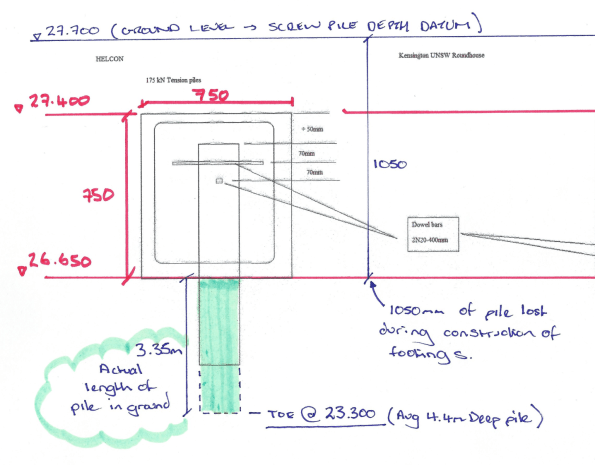 27.700 (GROUND LEVEL → SCREW PILE DEPTH DATUM)
HELCON
Kensington UNSW Roundhouse
175 kN Tension piles
750
27.400
+ 50mm
70mm
1050
70mm
750
Dowel bars
2N20-400mm
26.650
1050mm of pile lost
during construction of
footings.
3.35m
Actual
length of
pile in ground
TOE @ 23.300 (Avg 4.4m Deep pile)